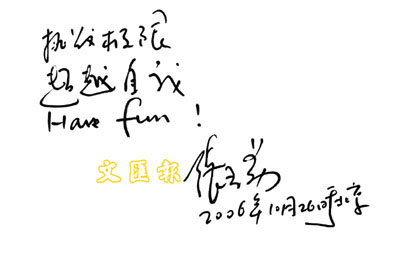 挑战极限
超越自我
Have fun!
文匯報
2006年10月26日于北京